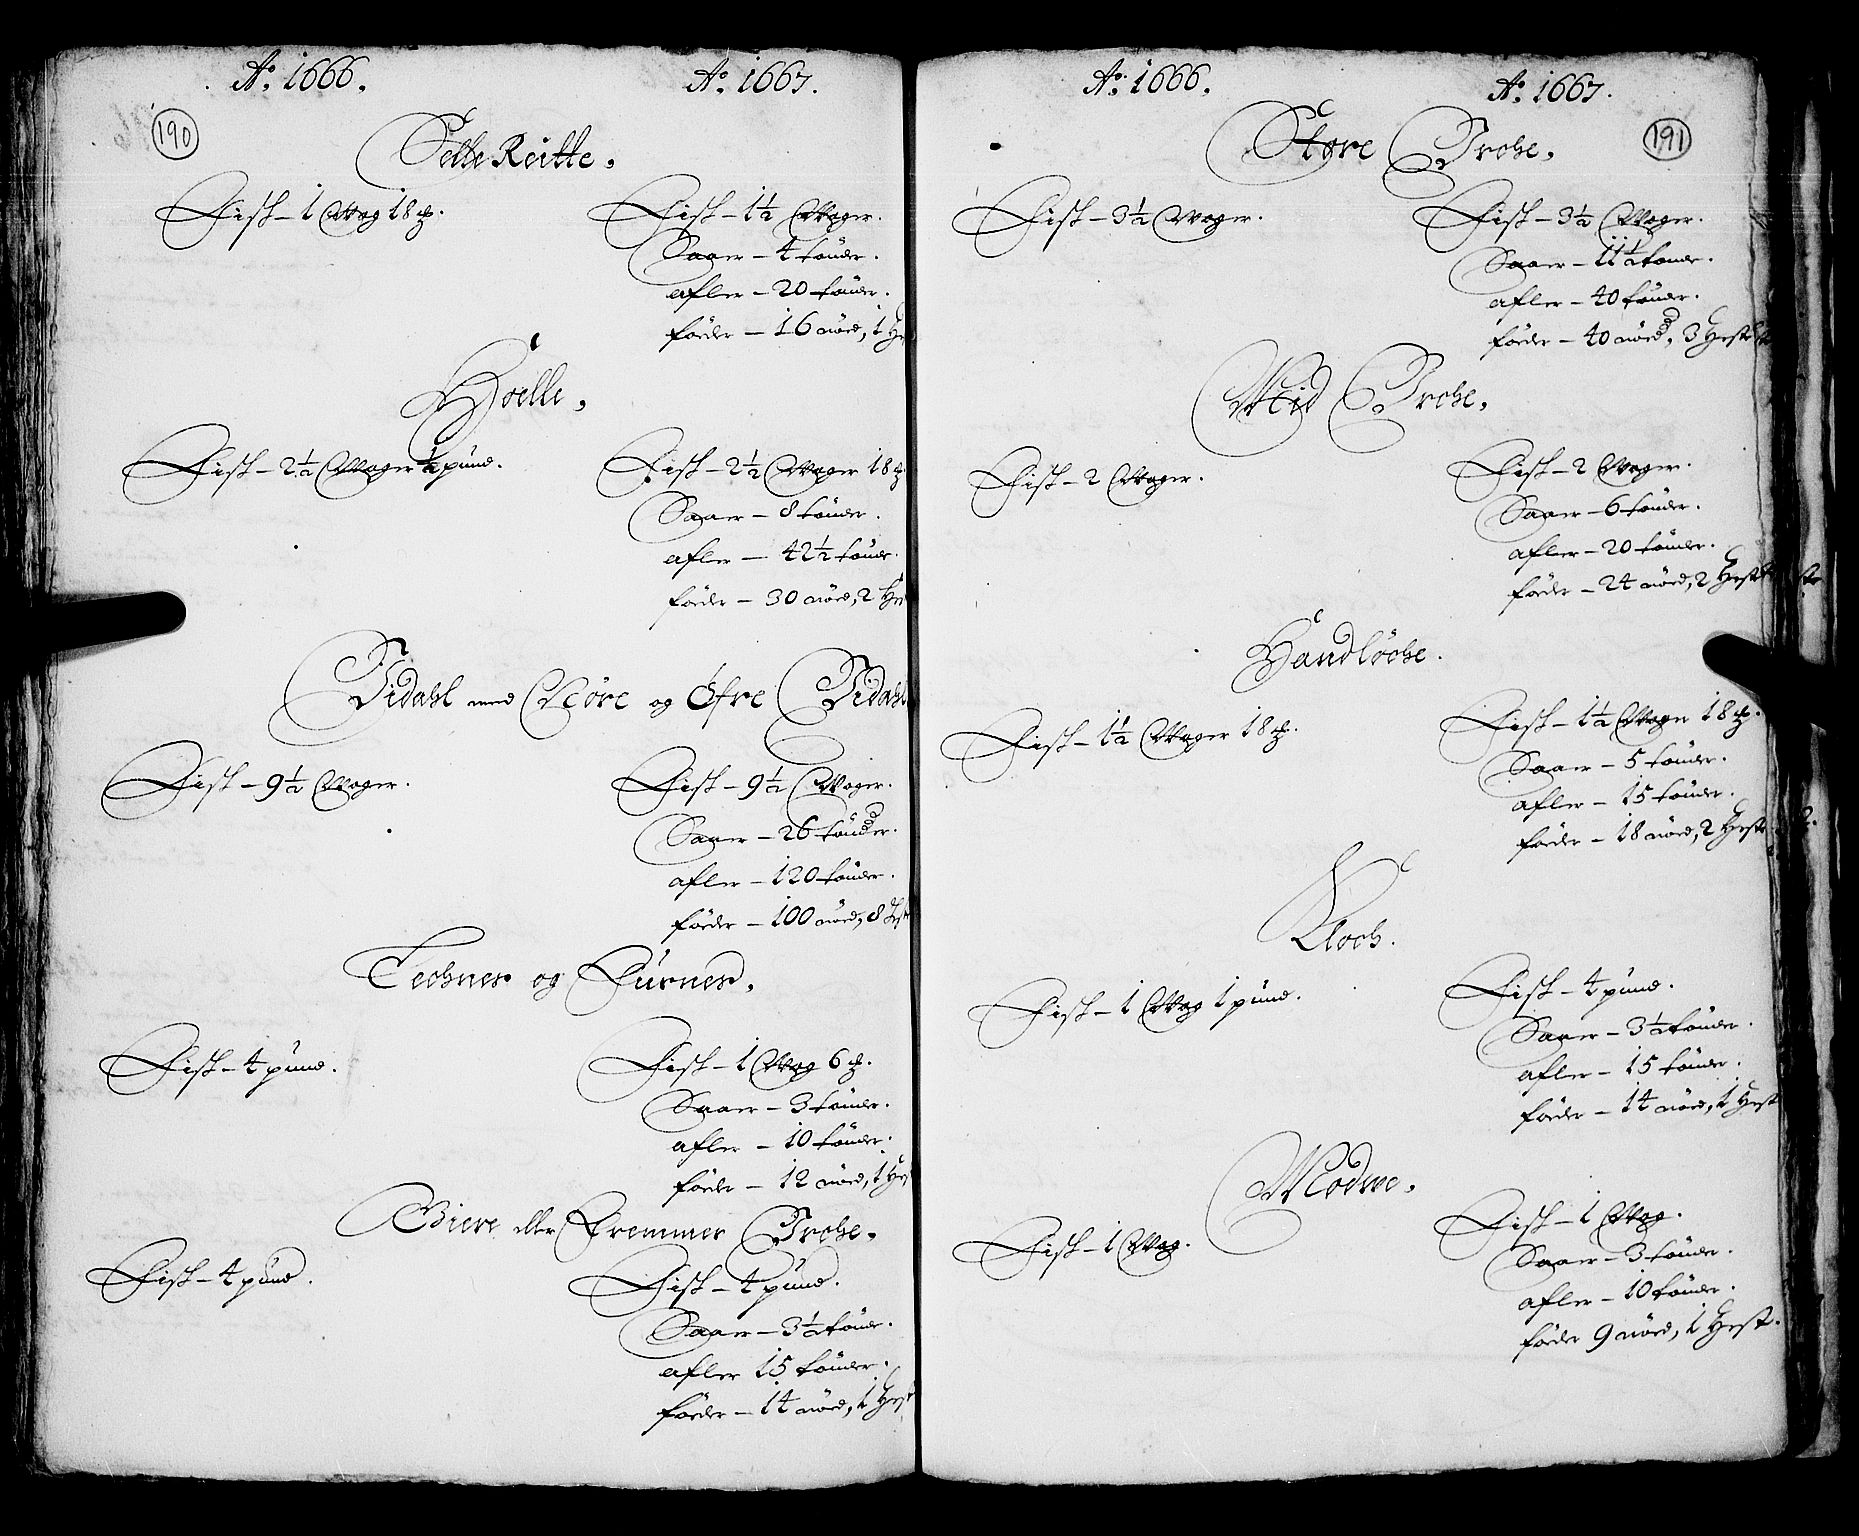 Aº. 1666. Aº. 1667.
190
Selle Reitte.
Fisk - 1 Wog 18 ℔. Fisk - 1½ Woger.
Saaer - 4 tønder.
afler - 20 tønder.
føeder - 16 nöed, 1 He
Hoelle.
Fisk - 2½ Woger ½ pund. Fisk - 2½ Woger 18 ℔
Saaer - 8 tønder.
afler - 42½ tønder.
føeder - 30 nöed, 2 He
Tidahl med Nöre og Öfre Tidahl
Fisk - 9½ Woger. Fisk - 9½ Woger.
Saaer - 26 tønder.
afler - 120 tønder.
føeder - 100 nöed, 8 Hest
Techner og Furner.
Fisk - 4 pund. Fisk - 1 Wog 6 ℔.
Saaer - 3 tønder.
afler - 10 tønder.
føeder - 12 nöed, 1 Hes
Giere eller Fremmer Grohe.
Fisk - 4 pund. Fisk - 4 pund.
Saaer - 3½ tønder.
afler 15 tønder.
føeder - 14 nöed, 1 Hest
Aº. 1666. Aº. 1667.
191
Store Grohe.
Fisk - 3½ Woger. Fisk - 3½ Woger.
Saaer - 11½ tønder.
afler - 40 tønder.
føeder - 40 nöed, 3 Heste
Mid Grohe.
Fisk - 2 Woger. Fisk - 2 Woger.
Saaer - 6 tønder.
afler - 20 tønder.
føeder - 24 nöed, 2 Heste
Handlöche.
Fisk - 1½ Woger 18 ℔. Fisk - 1½ Woger 18 ℔.
Saaer - 5 tønder.
afler - 15 tønder.
føeder - 18 nöed, 2 Heste
Kloch.
Fisk - 1 Wog 1 pund. Fisk - 4 pund.
Saaer - 3½ tønder.
afler - 15 tønder.
føeder - 14 nöed, 1 Hest
Modwe.
Fisk - 1 Wog. Fisk - 1 Wog.
Saaer - 3 tønder.
afler - 10 tønder.
føeder 9 nöed, 1 Hest.